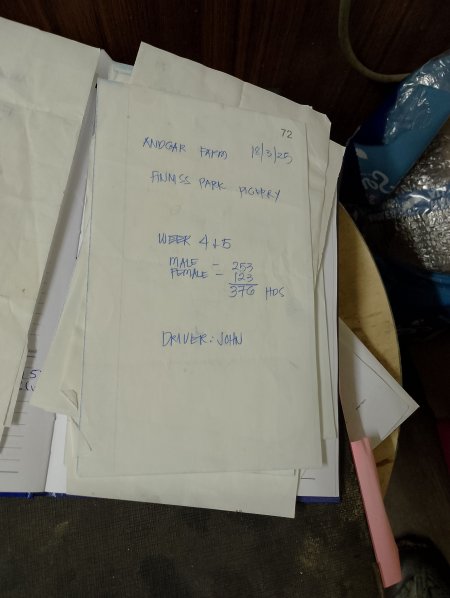 72
ANDGAR FARM 18/3/25
PARK PIGGERY
WEEK 4+5
MALE = 253
FEMALE = 123
376 HDS
DRIVER: JOHN